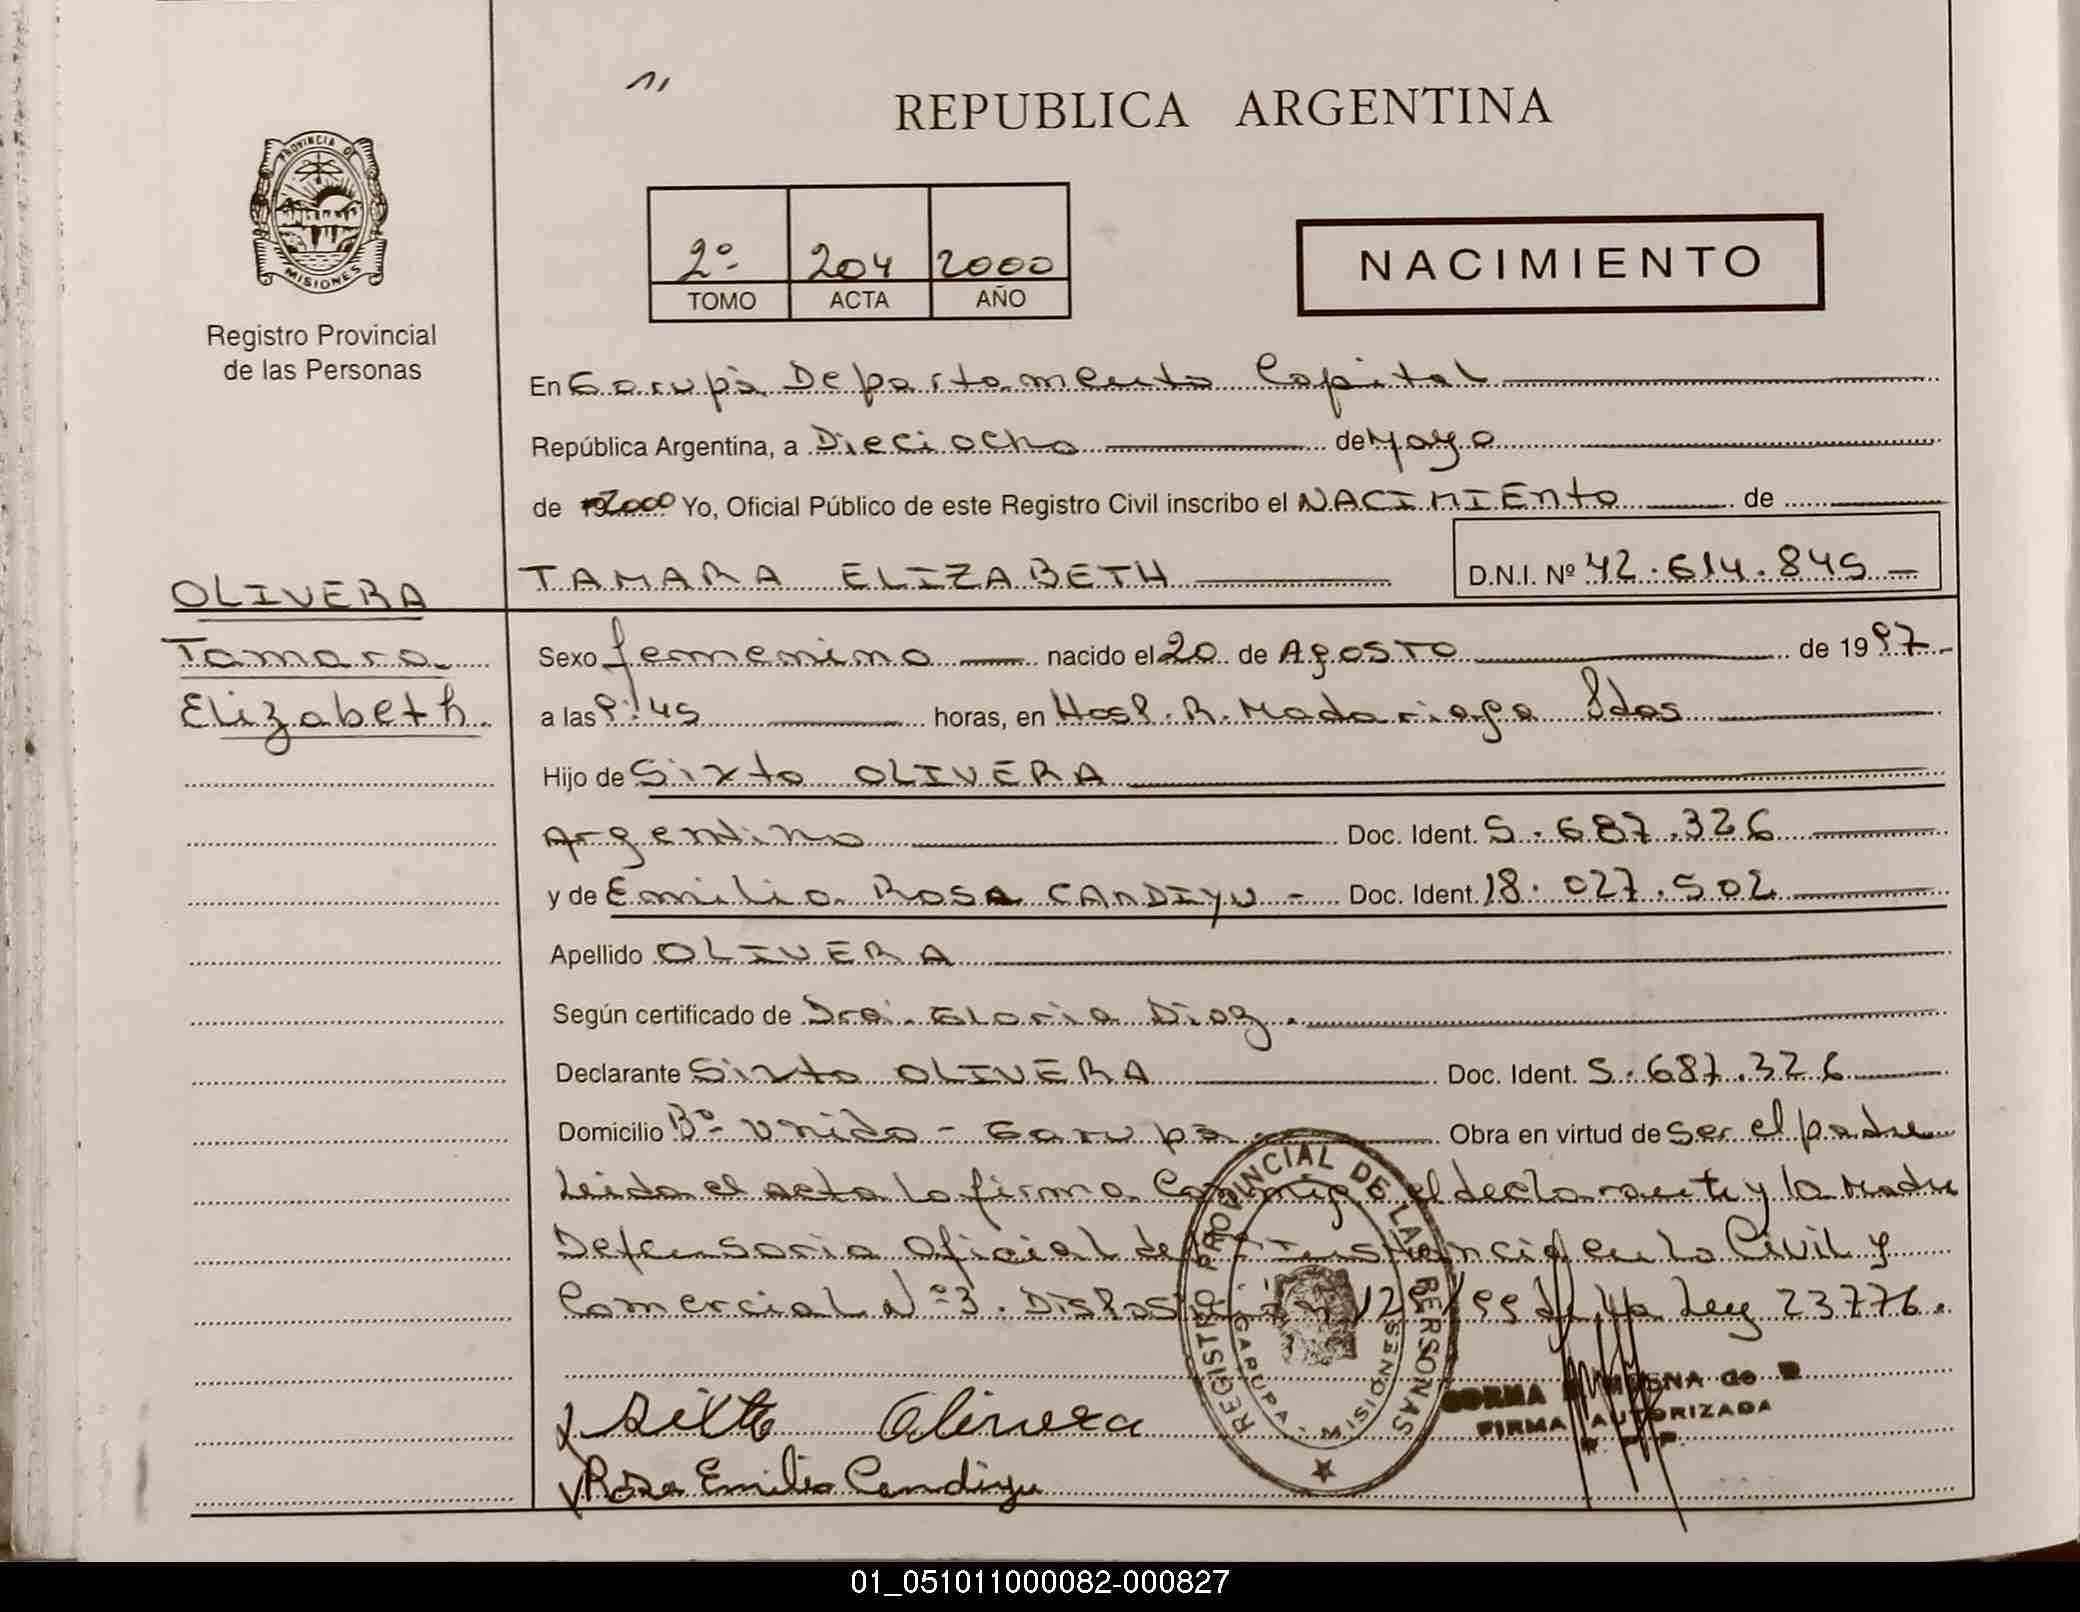 REPUBLICA ARGENTINA
PROVINCIA DE
MISIONES
Registro Provincial
de las Personas
2º 204 2000
TOMO ACTA AÑO
NACIMIENTO
En Garupà Departamento Capital
República Argentina, a Dieciocho de Mayo
de 2000 Yo, Oficial Público de este Registro Civil inscribo el NACIMIENTO de
TAMARA ELIZABETH D.N.I. Nº 42.614.845
OLIVERA
Tamara
Elizabeth.
Sexo femenino nacido el 20 de Agosto de 1997
a las 9:45 horas, en Hosp. R. Madariaga Pdas
Hijo de Sixto OLIVERA
Argentino Doc. Ident. 5.687.326
y de Emilia ROSA CANDIYU - Doc. Ident. 18.027.502
Apellido OLIVERA
Según certificado de Dra. Gloria Diaz.
Declarante Sixto OLIVERA Doc. Ident. 5.687.326
Domicilio Bº Unido - Garupà. Obra en virtud de Ser el padre
Leida el acta la firma Conmigo el declarante y la Madre
Defensoria Oficial de Instancia en lo Civil y
Comercial Nº 3. 129/99 de la Ley 23776.
REGISTRO PROVINCIAL DE LAS PERSONAS
GARUPA - MISIONES
Sixto Olivera
Rosa Emilia Candiyu
NORMA de
FIRMA AUTORIZADA
01_051011000082-000827